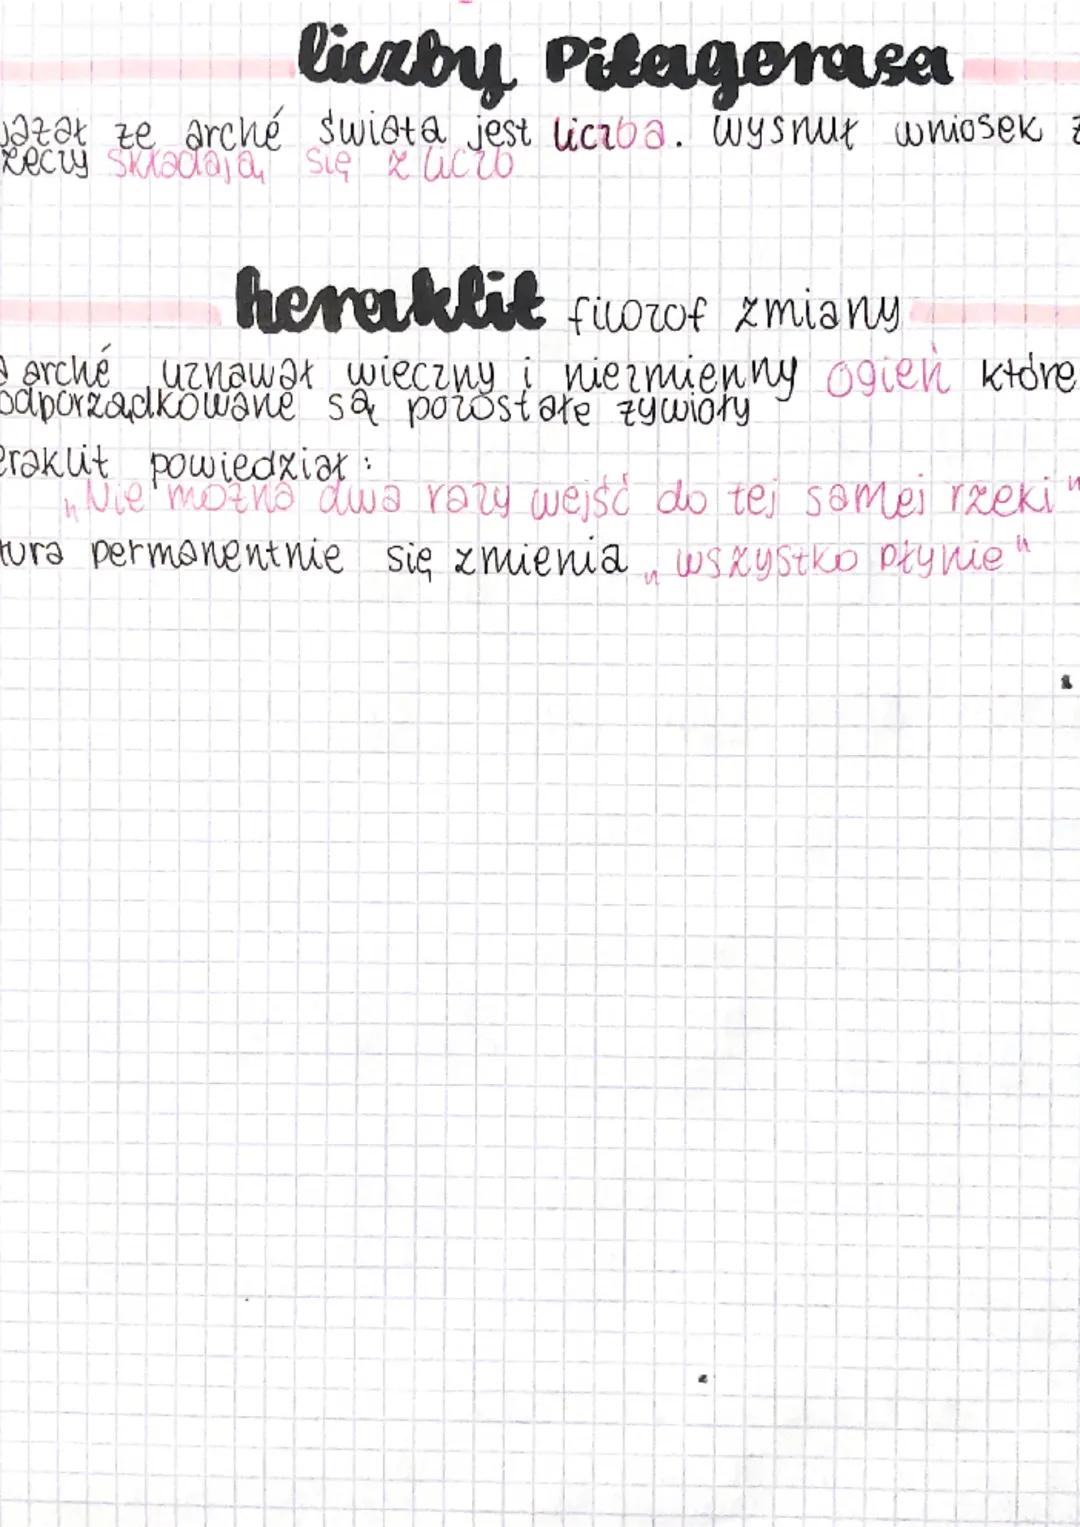 liczby Pitagorasa
ważał ze arché świata jest liczba. wysnuł wniosek ż
rzeczy składają się z liczb
heraklit filozof zmiany
a arché uznawał wieczny i niezmienny ogień które
odporządkowane są pozostałe żywioły
eraklit powiedział:
„Nie można dwa razy wejść do tej samej rzeki"
tura permanentnie się zmienia „wszystko płynie"